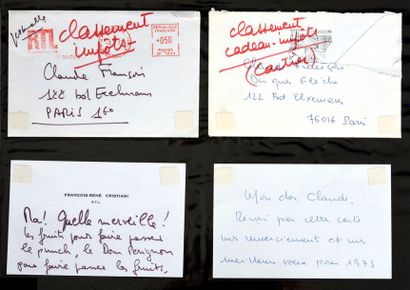 RTL
classement
impôts
REPUBLIQUE
FRANÇAISE
050
Claude François
122 bd Exelmans
PARIS 16e
classement
cadeau-impôts
(Cartier)
Disque Flèche
122 Bd Exelmans
75016 Paris
FRANÇOIS-RENÉ CRISTIANI
R.T.L.
Ma! Quelle merveille!
les fruits pour faire passer
le punch, le Dom Perignon
pour faire passer les fruits,
Mon cher Claude,
Reçois par cette carte
mes remerciements et mes
meilleurs voeux pour 1973